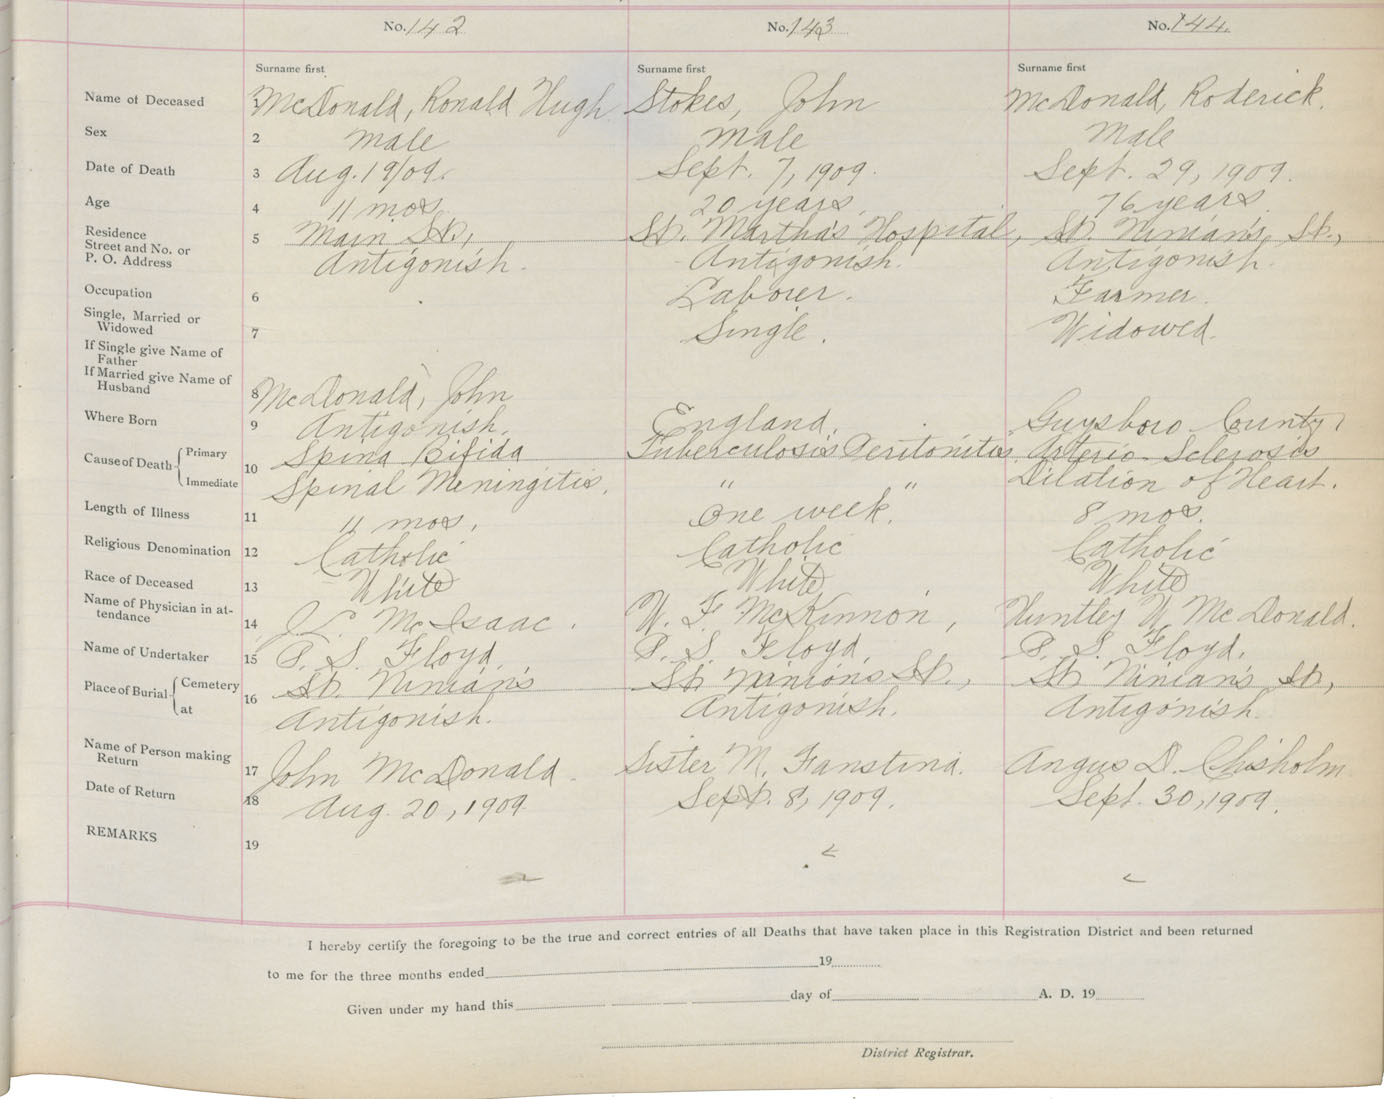 No. 142 No. 143 No. 144.
Surname first Surname first Surname first
Name of Deceased 1 McDonald, Ronald Hugh Stokes, John McDonald, Roderick.
Sex 2 Male Male Male
Date of Death 3 Aug. 19/09. Sept. 7, 1909. Sept. 29, 1909.
Age 4 11 mos. 20 years. 76 years.
Residence
Street and No. or 5 Main St., St. Martha's Hospital, St. Ninian's St.,
P. O. Address Antigonish. Antigonish. Antigonish.
Occupation 6 Laborer. Farmer.
Single, Married or
Widowed 7 Single. Widowed.
If Single give Name of
Father
If Married give Name of
Husband 8 McDonald, John
Where Born 9 Antigonish. England. Guysboro County
Cause of Death Primary 10 Spina Bifida Tuberculosis Peritonitis. Arterio-Sclerosis
Immediate Spinal Meningitis. " " Dilation of Heart.
Length of Illness 11 11 mos. One week. 8 mos.
Religious Denomination 12 Catholic Catholic Catholic
Race of Deceased 13 White White White
Name of Physician in at-
tendance 14 McIsaac. W. F. McKinnon, Huntley W McDonald.
Name of Undertaker 15 P. S. Floyd. P. S. Floyd. P. S. Floyd.
Place of Burial Cemetery 16 St. Ninian's St. Ninion's St., St Ninian's St.,
at Antigonish. Antigonish. Antigonish.
Name of Person making
Return 17 John McDonald. Sister M. Faustina. Angus D. Chisholm
Date of Return 18 Aug. 20, 1909 Sept. 8, 1909. Sept. 30, 1909.
REMARKS 19
I hereby certify the foregoing to be the true and correct entries of all Deaths that have taken place in this Registration District and been returned
to me for the three months ended 19
Given under my hand this day of A. D. 19
District Registrar.